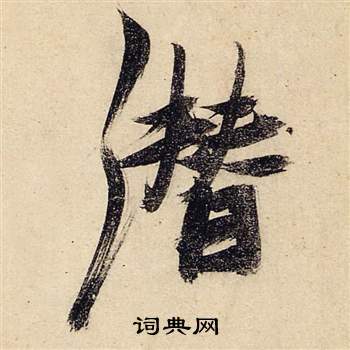 潜
词典网